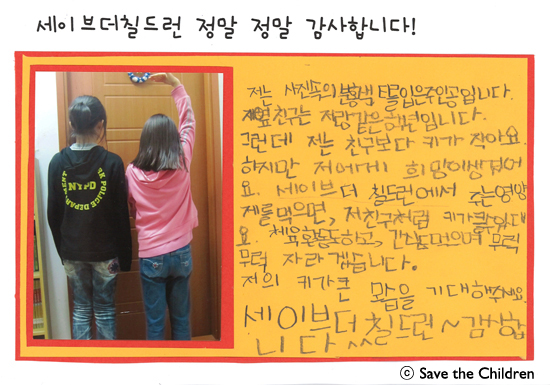 세이브더칠드런 정말 정말 감사합니다!
저는 사진속의 분홍색 티를입은주인공입니다.
제옆 친구는 저랑같은학년입니다.
그런데 저는 친구보다 키가 작아요.
하지만 저에게 희망이생겼어
요. 세이브더 칠드런에서 주는영양
제를먹으면, 저친구처럼 키가클꺼래
요. 체육활동하고, 간식도먹으며 무럭
무럭 자라겠습니다.
저의 키가큰 모습을 기대해주세요.
세이브더칠드런~감사합
니다^^
NYPD
POLICE DEPARTMENT
ⓒ Save the Children